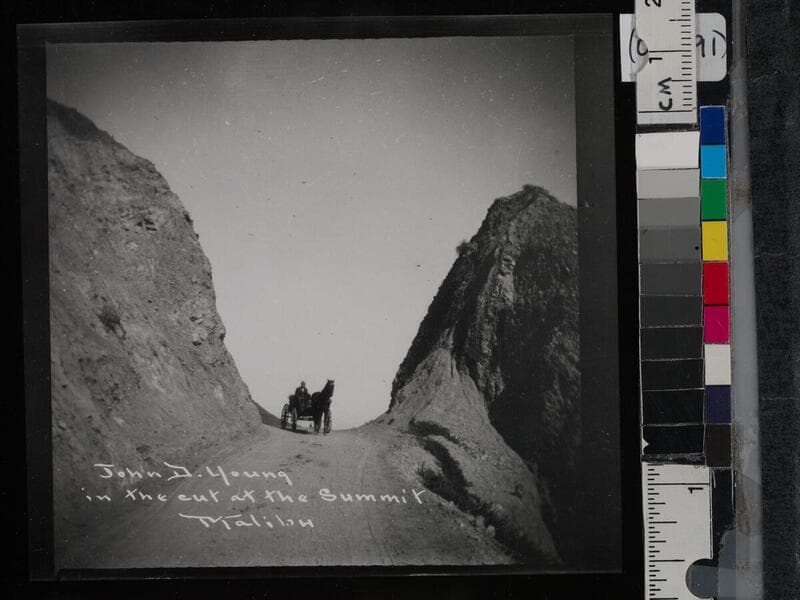 John D. Young
in the cut at the Summit
Malibu
CM
1
2
91)
1